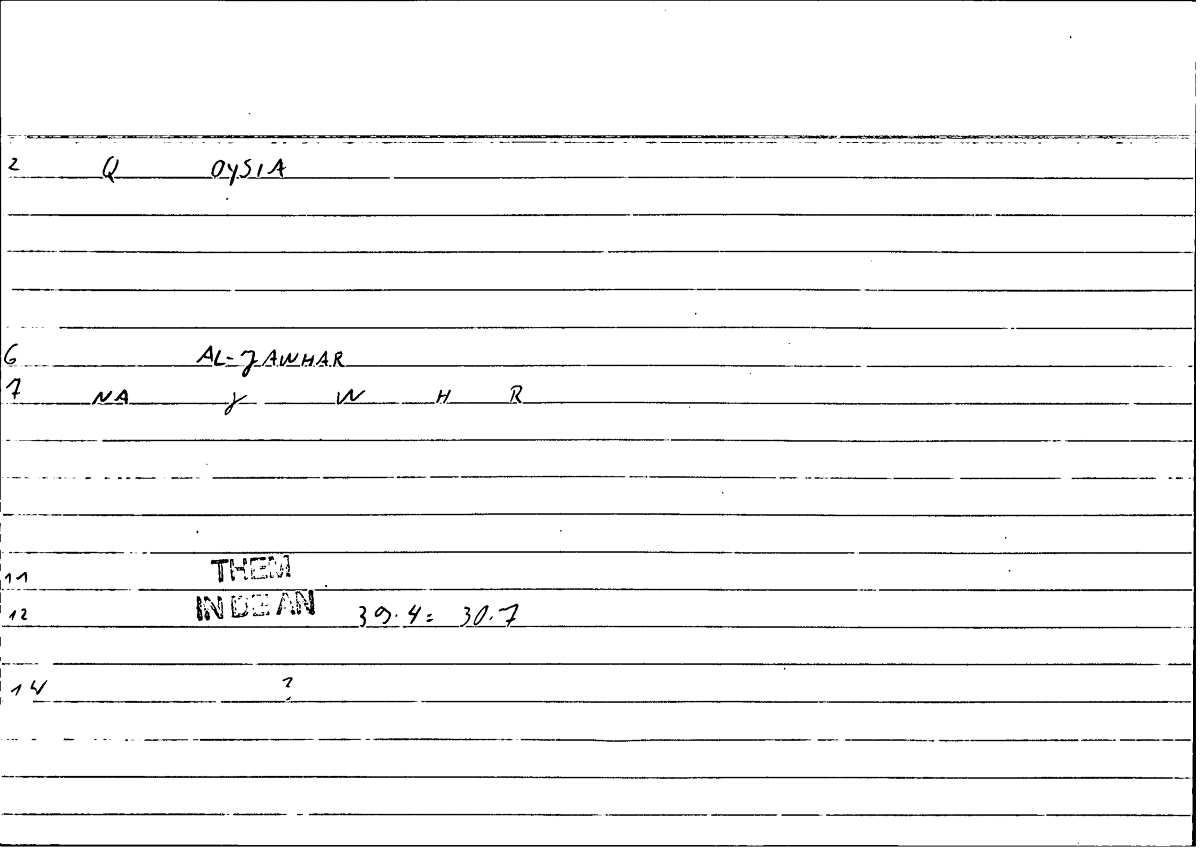 2 Q OYSIA
6 AL-JAWHAR
7 NA J W H R
11 THEM
12 IN DE AN 39.4 = 30.7
14 ?